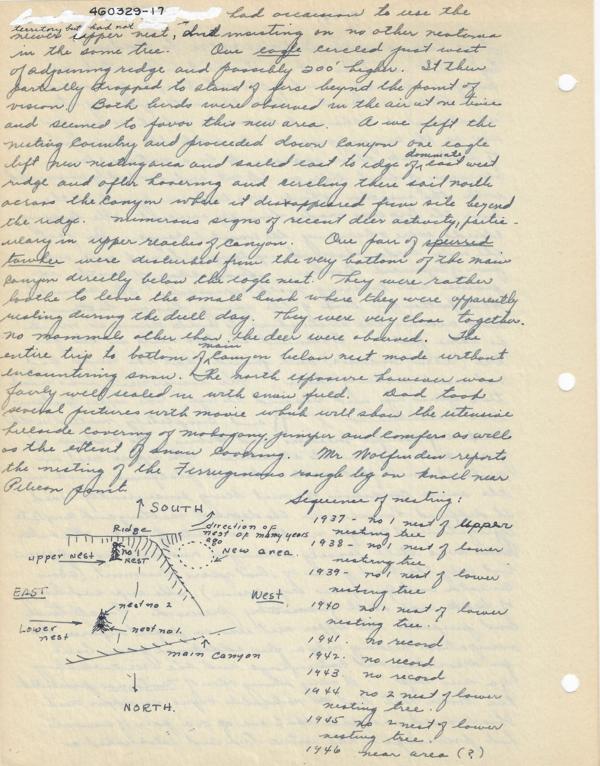 4G0329-17
had occasion to use the
territory but had not
newer upper nest, and insisting on no other
in the same tree. One eagle circled just west
of adjoining ridge and possibly 200' higher. It then
partially dropped to stand of firs beyond the point of
vision. Both birds were observed in the air at one time
and seemed to favor this new area. As we left the
nesting country and proceeded down canyon one eagle
left new nesting area and sailed east to edge of
dominate
east west
ridge and after hovering and circling there sail north
across the canyon where it dissappeared from site beyond
the ridge. Numerous signs of recent deer activity, partic-
ulary in upper reaches of canyon. One pair of spurred
towhee were disturbed from the very bottom of the main
canyon directly below the eagle nest. They were rather
loathe to leave the small bush where they were apparently
resting during the dull day. They were very close together.
no mammals other than the deer were observed. The
entire trip to bottom of
main
canyon below nest made without
encountering snow. The north exposure however was
fairly well sealed in with snow field. Dad took
several pictures with movie which will show the extensive
hillside covering of mahogany, juniper and conifers as well
as the extent of snow covering. Mr Wolfinden reports
the nesting of the Ferruginous rough leg on knoll near
Pelican point.
SOUTH
Ridge
direction of
nest of many years
ago
upper nest
no 1
nest
New area.
EAST
West.
nest no 2
Lower
nest
nest no 1.
main Canyon
NORTH.
Sequence of nesting:
1937 - no 1 nest of upper
nesting tree
1938 - no 1 nest of lower
nesting tree
1939 - no 1 nest of lower
nesting tree
1940 no 1 nest of lower
nesting tree.
1941. no record
1942. no record
1943 no record
1944 no 2 nest of lower
nesting tree.
1945 no 2 nest of lower
nesting tree.
1946 near area (?)